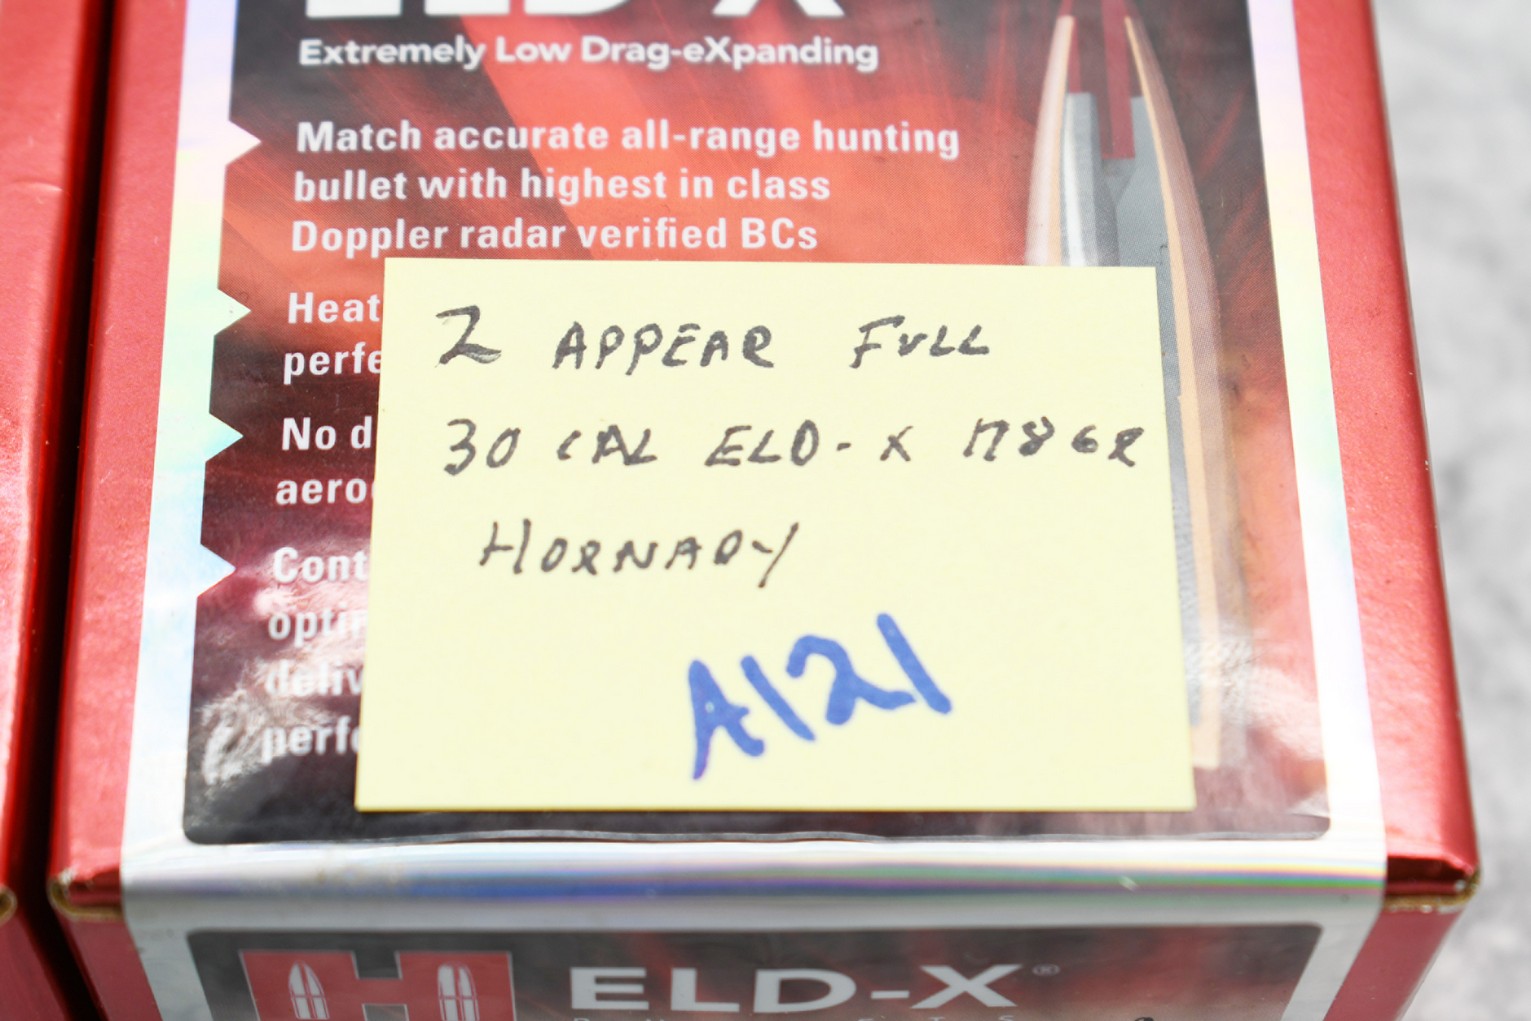 ELD-X
Extremely Low Drag-eXpanding
Match accurate all-range hunting
bullet with highest in class
Doppler radar verified BCs
Heat
perfe
No d
aero
Cont
opti
deliv
perfo
2 APPEAR FULL
30 CAL ELD-X 178 GR
HORNADY
A121
H
ELD-X®